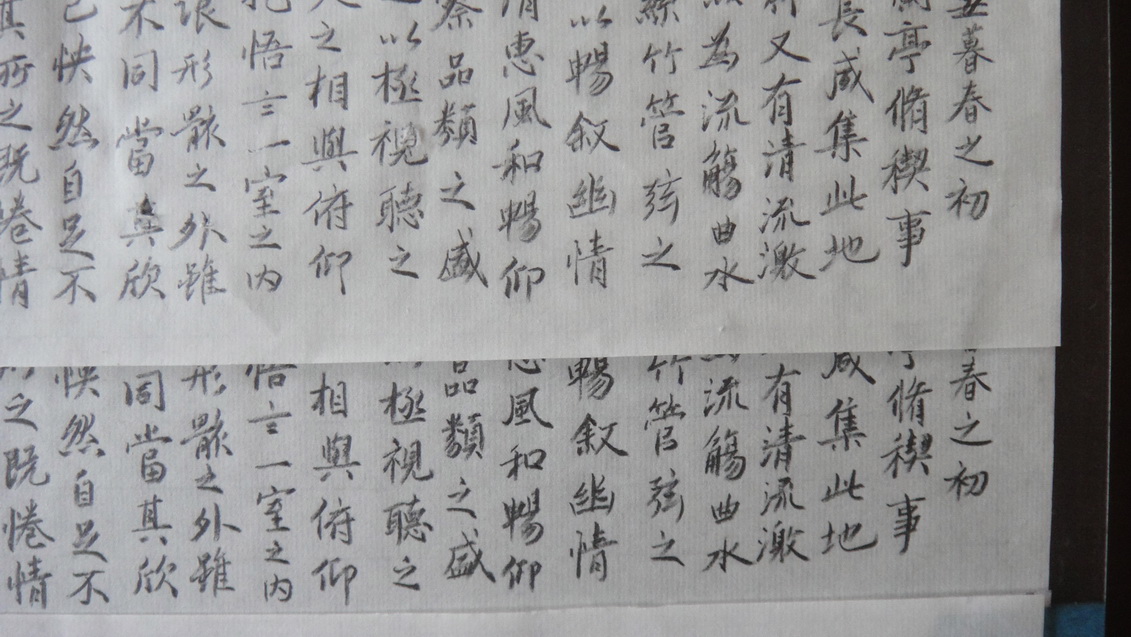 暮春之初
亭脩禊事
長咸集此地
又有清流激
為流觴曲水
絲竹管弦之
以暢叙幽情
清惠風和暢仰
察品類之盛
以極視聽之
之相與俯仰
悟言一室之内
形骸之外雖
不同當其欣
己快然自足不
其所之既惓情
春之初
脩禊事
咸集此地
有清流激
流觴曲水
竹管弦之
暢叙幽情
風和暢仰
品類之盛
極視聽之
相與俯仰
悟言一室之内
形骸之外雖
同當其欣
快然自足不
之既惓情